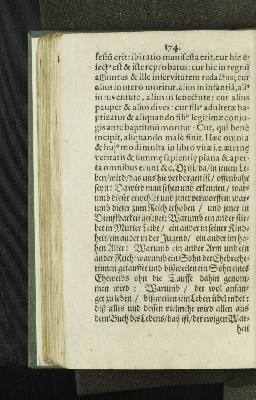 174.
festū erit: ibi ratio manifesta erit, cur hic e-
lect⁹ est & iste reprobatus: cur hic in regnū
assumtus & ille in servitutem redactus; cur
alius in utero moritur, alius in infantiâ, ali⁹
in juventute, alius in senectute: cur alius
pauper & alius dives: cur fili⁹ adulteræ ba-
ptizatur & aliquando fili⁹ legitimæ conju-
gis ante baptismū moritur. Cur, qui benè
incipit, aliquando malè finit. Hæc omnia
& huj⁹modi multa in libro vitæ i.e. æternę
veritatis & summę sapientię plana & aper-
ta omnibus erunt &c. Diß/ da in jenem Le-
ben/ wird/ das uns hie verborgen ist/ offenbahr
seyn: Da wird man sehen und erkennen/ war-
umb dieser erwehlet und jener verworffen: war-
umb dieser zum Reich erhoben/ und jener in
Dienstbarkeit gesetzet: Warumb ein ander stir-
bet in Mutter Leibe/ ein ander in seiner Kind-
heit/ ein ander in der Jugend/ ein ander im ho-
hen Alter: Warumb ein ander Arm und ein
ander Reich: warumb ein Sohn der Ehebreche-
rinnen getauffet und bißweilen ein Sohn eines
Eheweibs ohn die Tauffe dahin genom-
men wird: Warumb/ der wol anfän-
get zu leben/ bißweilen ein Leben übel endet:
diß alles und dessen vielmehr wird allen aus
dem Buch des Lebens/ das ist/ der ewigen War-
heit